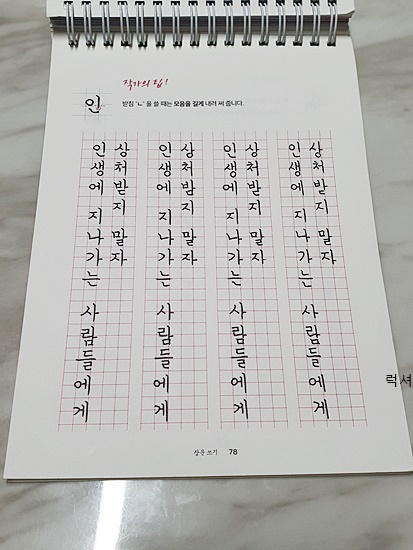 작가의 팁!
인
받침 'ㄴ'을 쓸 때는 모음을 길게 내려 써 줍니다.
인생에 지나가는 사람들에게
상처받지 말자
인생에 지나가는 사람들에게
상처받지 말자
인생에 지나가는 사람들에게
상처받지 말자
인생에 지나가는 사람들에게
상처받지 말자
럭셔
장문 쓰기 78